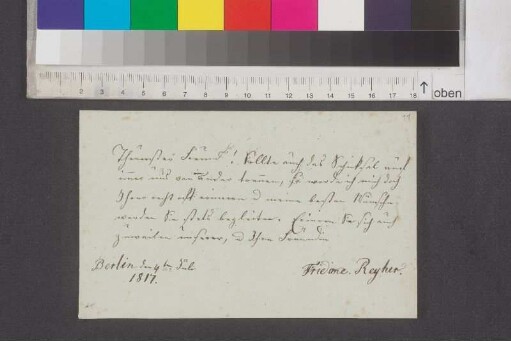 2 3 4 5 6 7 8 9 10 11 12 13 14 15 16 17 18
oben
Theuerster Freund! Sollte auch das Schiksal auch
immer uns von einander trennen, so werde ich mich doch
Ihrer recht oft erinnern u meine besten Wünsche
werden Sie stets begleiten. Erinnern Sie sich auch
zuweilen Ihrer Freundin
Berlin den 4ten Juli
1817.
Friedme. Reyher.